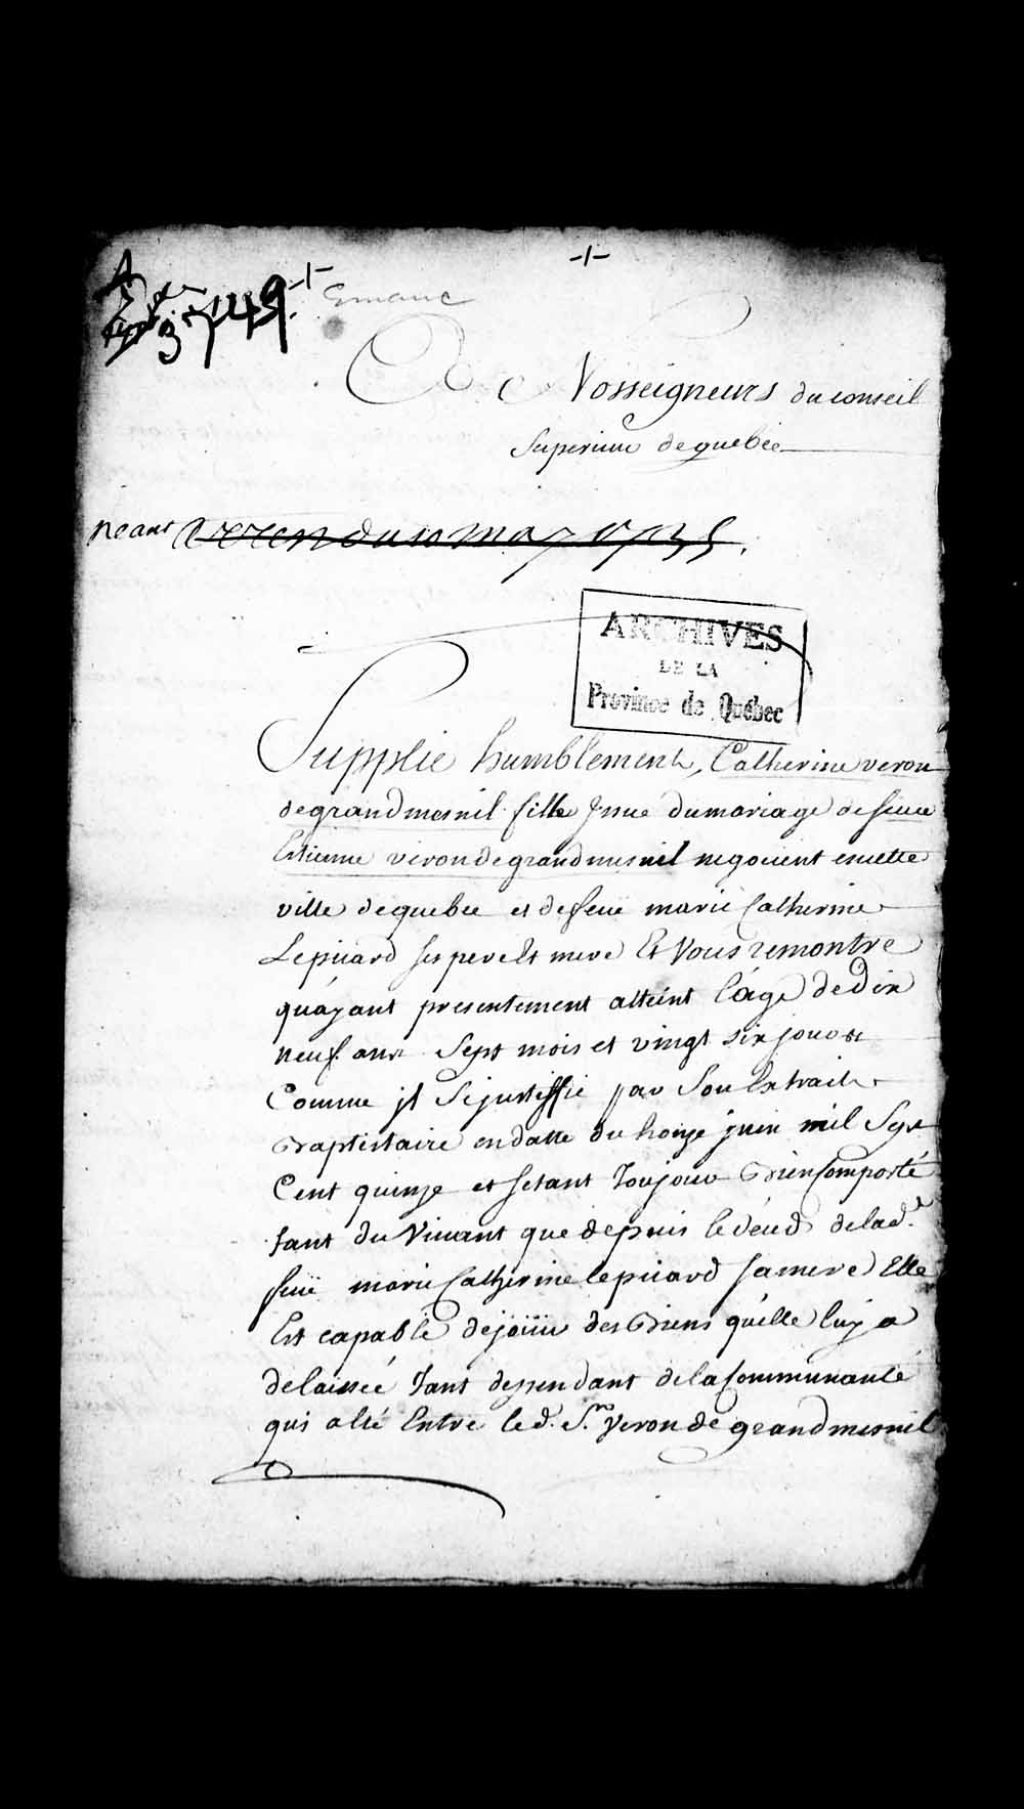 3749.
Emanc
A Nosseigneurs du conseil
Superieur de quebec
neant
ARCHIVES
DE LA
Province de Québec
Supplie humblement, Catherine veron
degrandmesnil fille Jssue du mariage de sieur
Estienne veron de grandmesnil negocient encette
ville de quebec et de feüe marie Catherine
Lepicard ses pere et mere Et Vous remontre
quáyant presentement atteint l'áge de Dix
neuf ans Sept mois et vingt six jours
Comme jl Se justiffie par Son Extrait
Baptistaire en datte du honze juin mil Sept
Cent quinze et setant Toujours Bien Comporté
tant du Vivant que depuis le déced de lad.e
feüe marie Catherine lepicard sa mere Elle
Est capable de joüir des Biens qu'elle luy a
delaissée Tant deppendant de la Communauté
qui a Eté Entre led. S.r Veron de grandmesnil